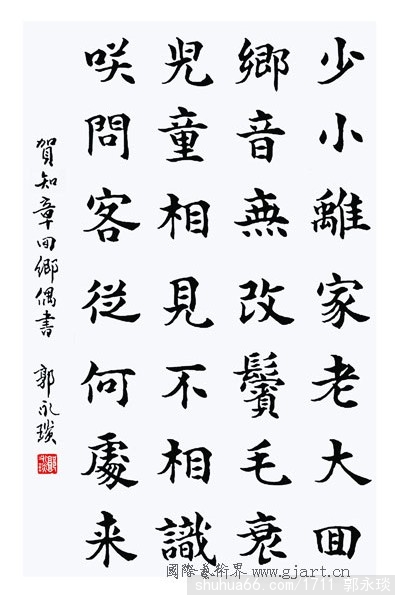 少小離家老大回
鄉音無改鬢毛衰
児童相見不相識
咲問客從何處来
賀知章回鄉偶書
郭永琰
國際藝術界 www.gjart.cn
shuhua66.com/1711 郭永琰